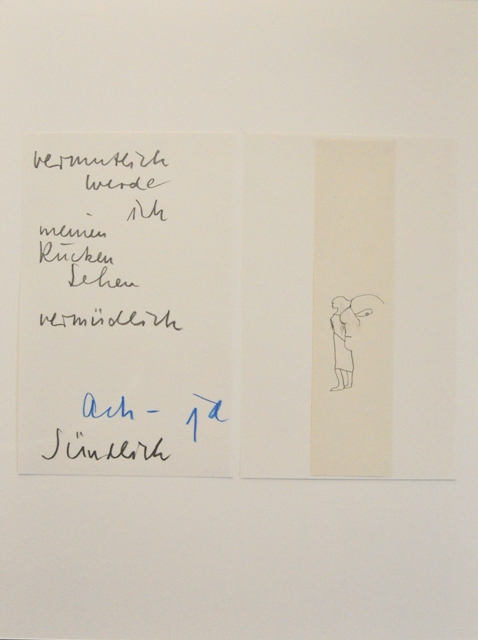 vermutlich
werde
ich
meinen
Rücken
sehen
vermüdlich
Ach – ja
Sündlich